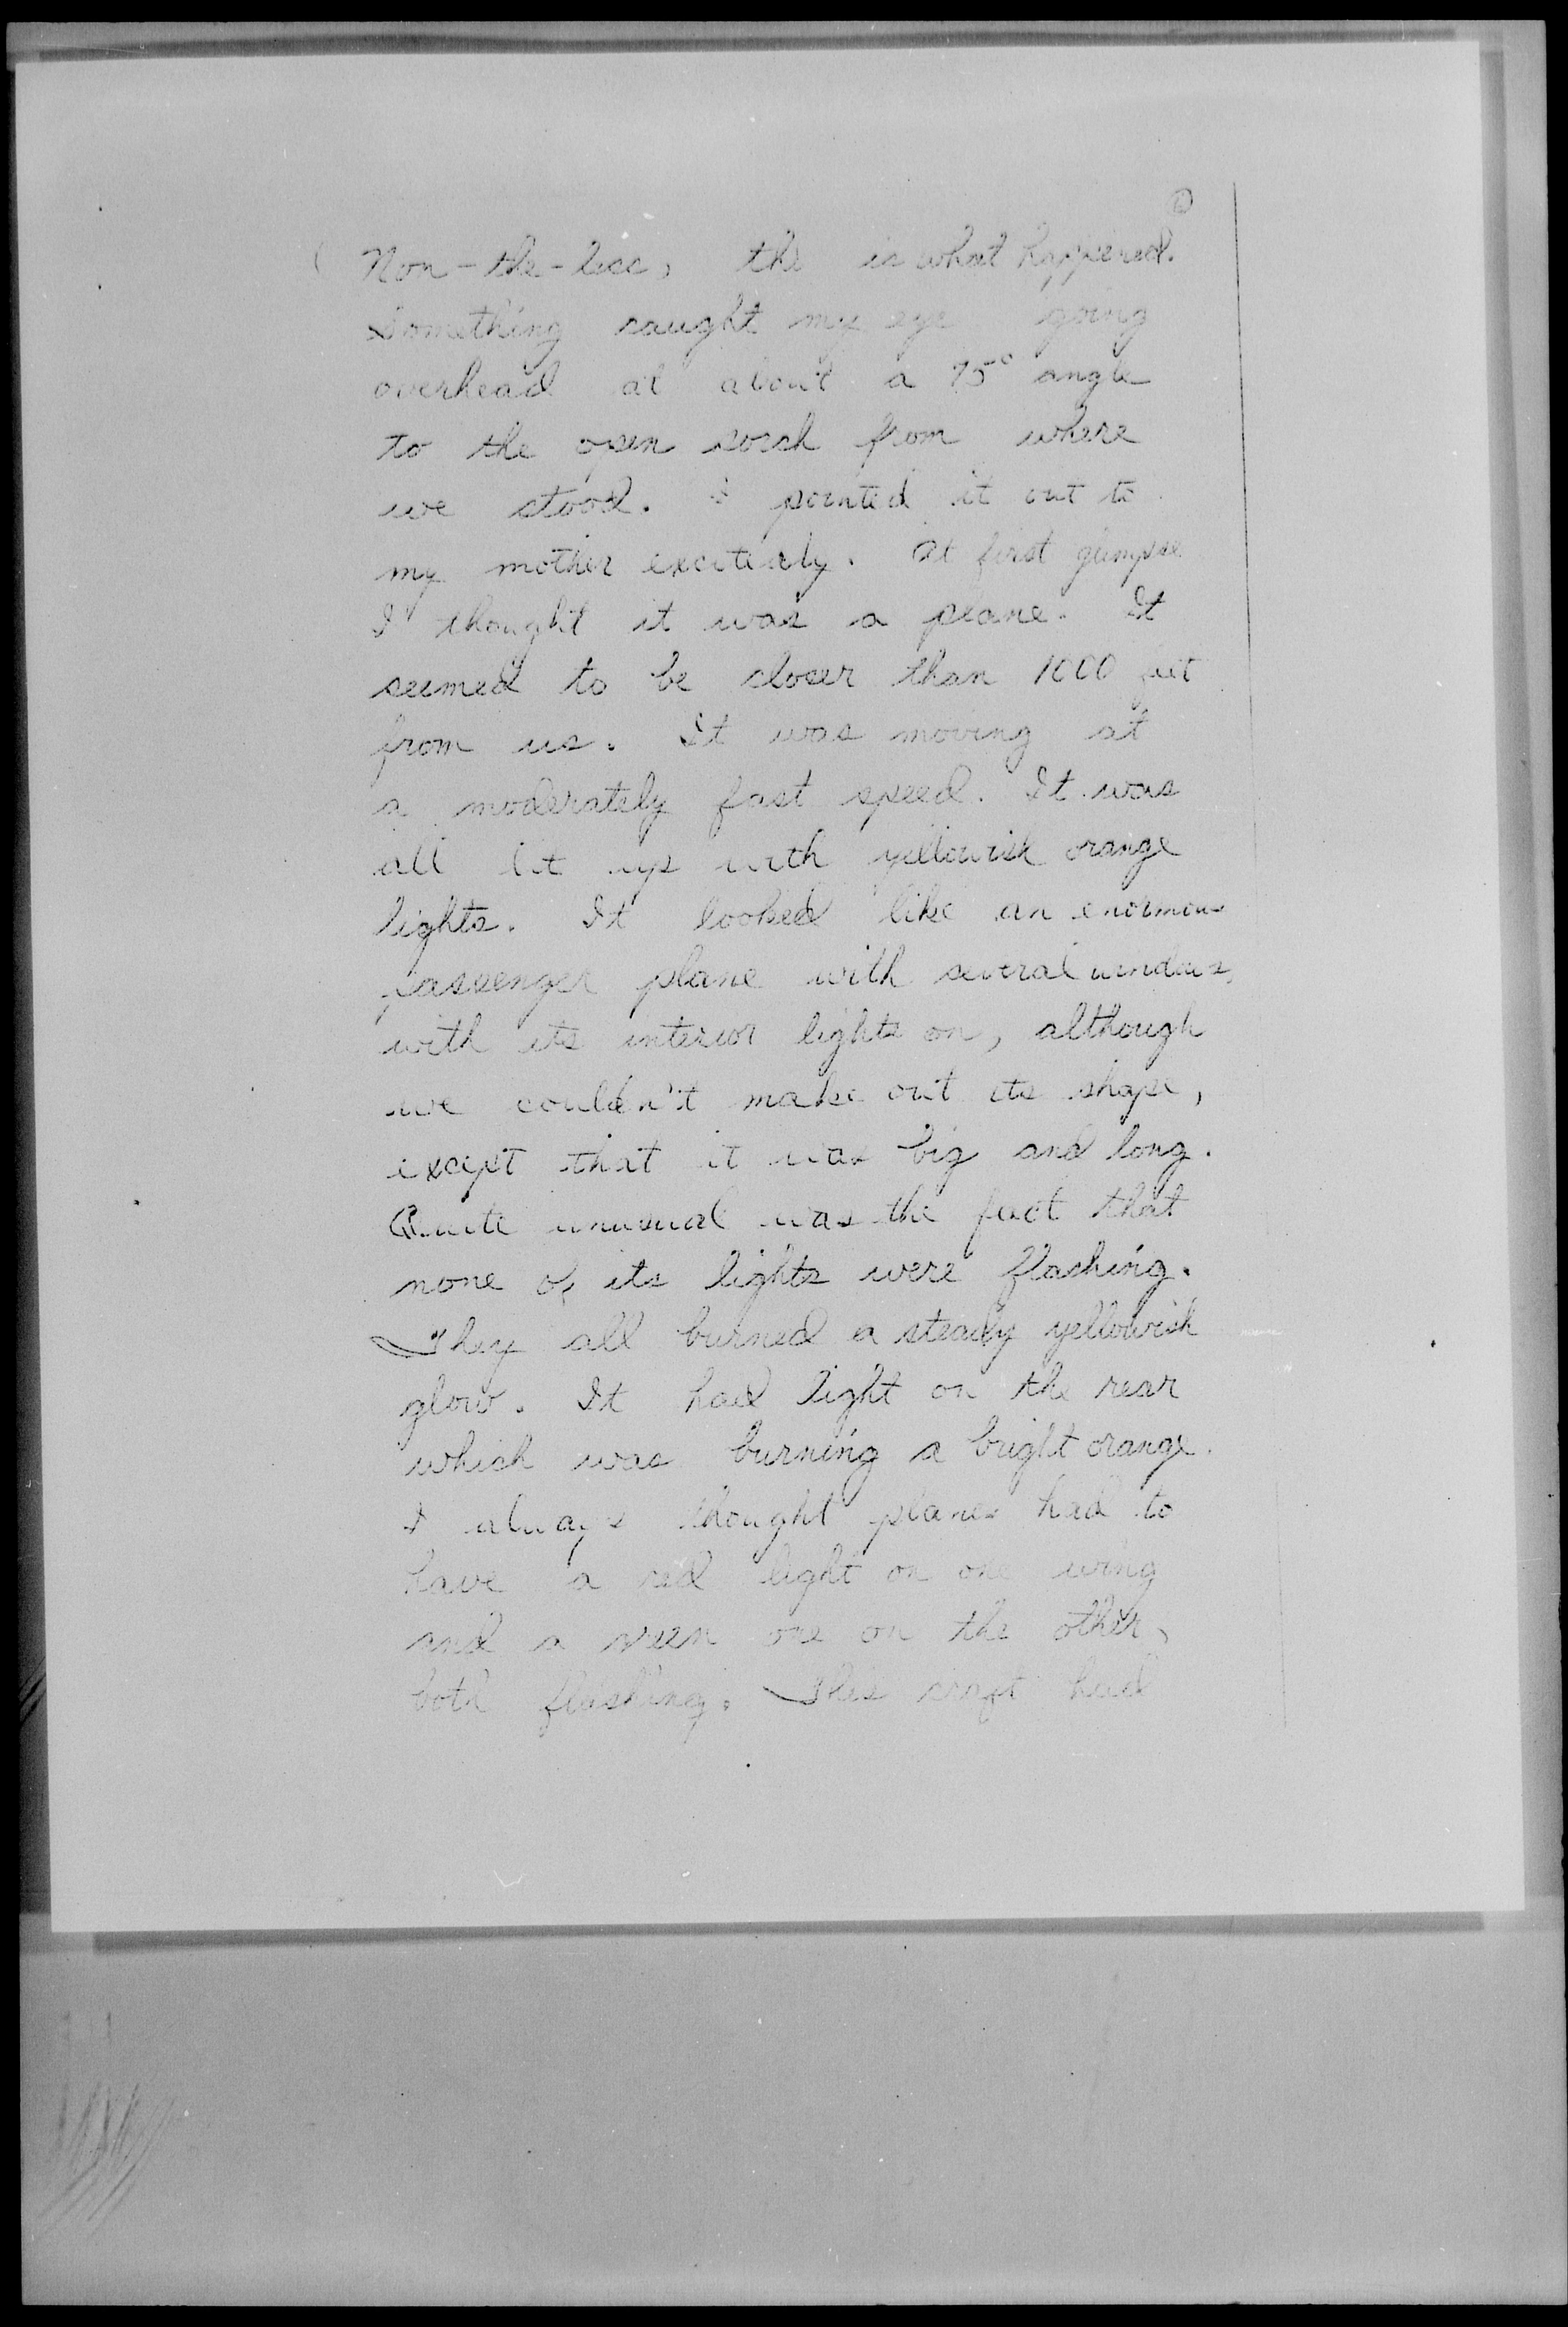 Non-the-less, the is what happened.
Something caught my eye going
overhead at about a 75° angle
to the open porch from where
we stood. I pointed it out to
my mother excitedly. At first glimpse
I thought it was a plane. It
seemed to be closer than 1000 feet
from us. It was moving at
a moderately fast speed. It was
all lit up with yellowish orange
lights. It looked like an enormous
passenger plane with several windows,
with its interior lights on, although
we couldn't make out its shape,
except that it was big and long.
Quite unusual was the fact that
none of its lights were flashing.
They all burned a steady yellowish
glow. It had light on the rear
which was burning a bright orange.
I always thought planes had to
have a red light on one wing
and a green one on the other,
both flashing. This craft had